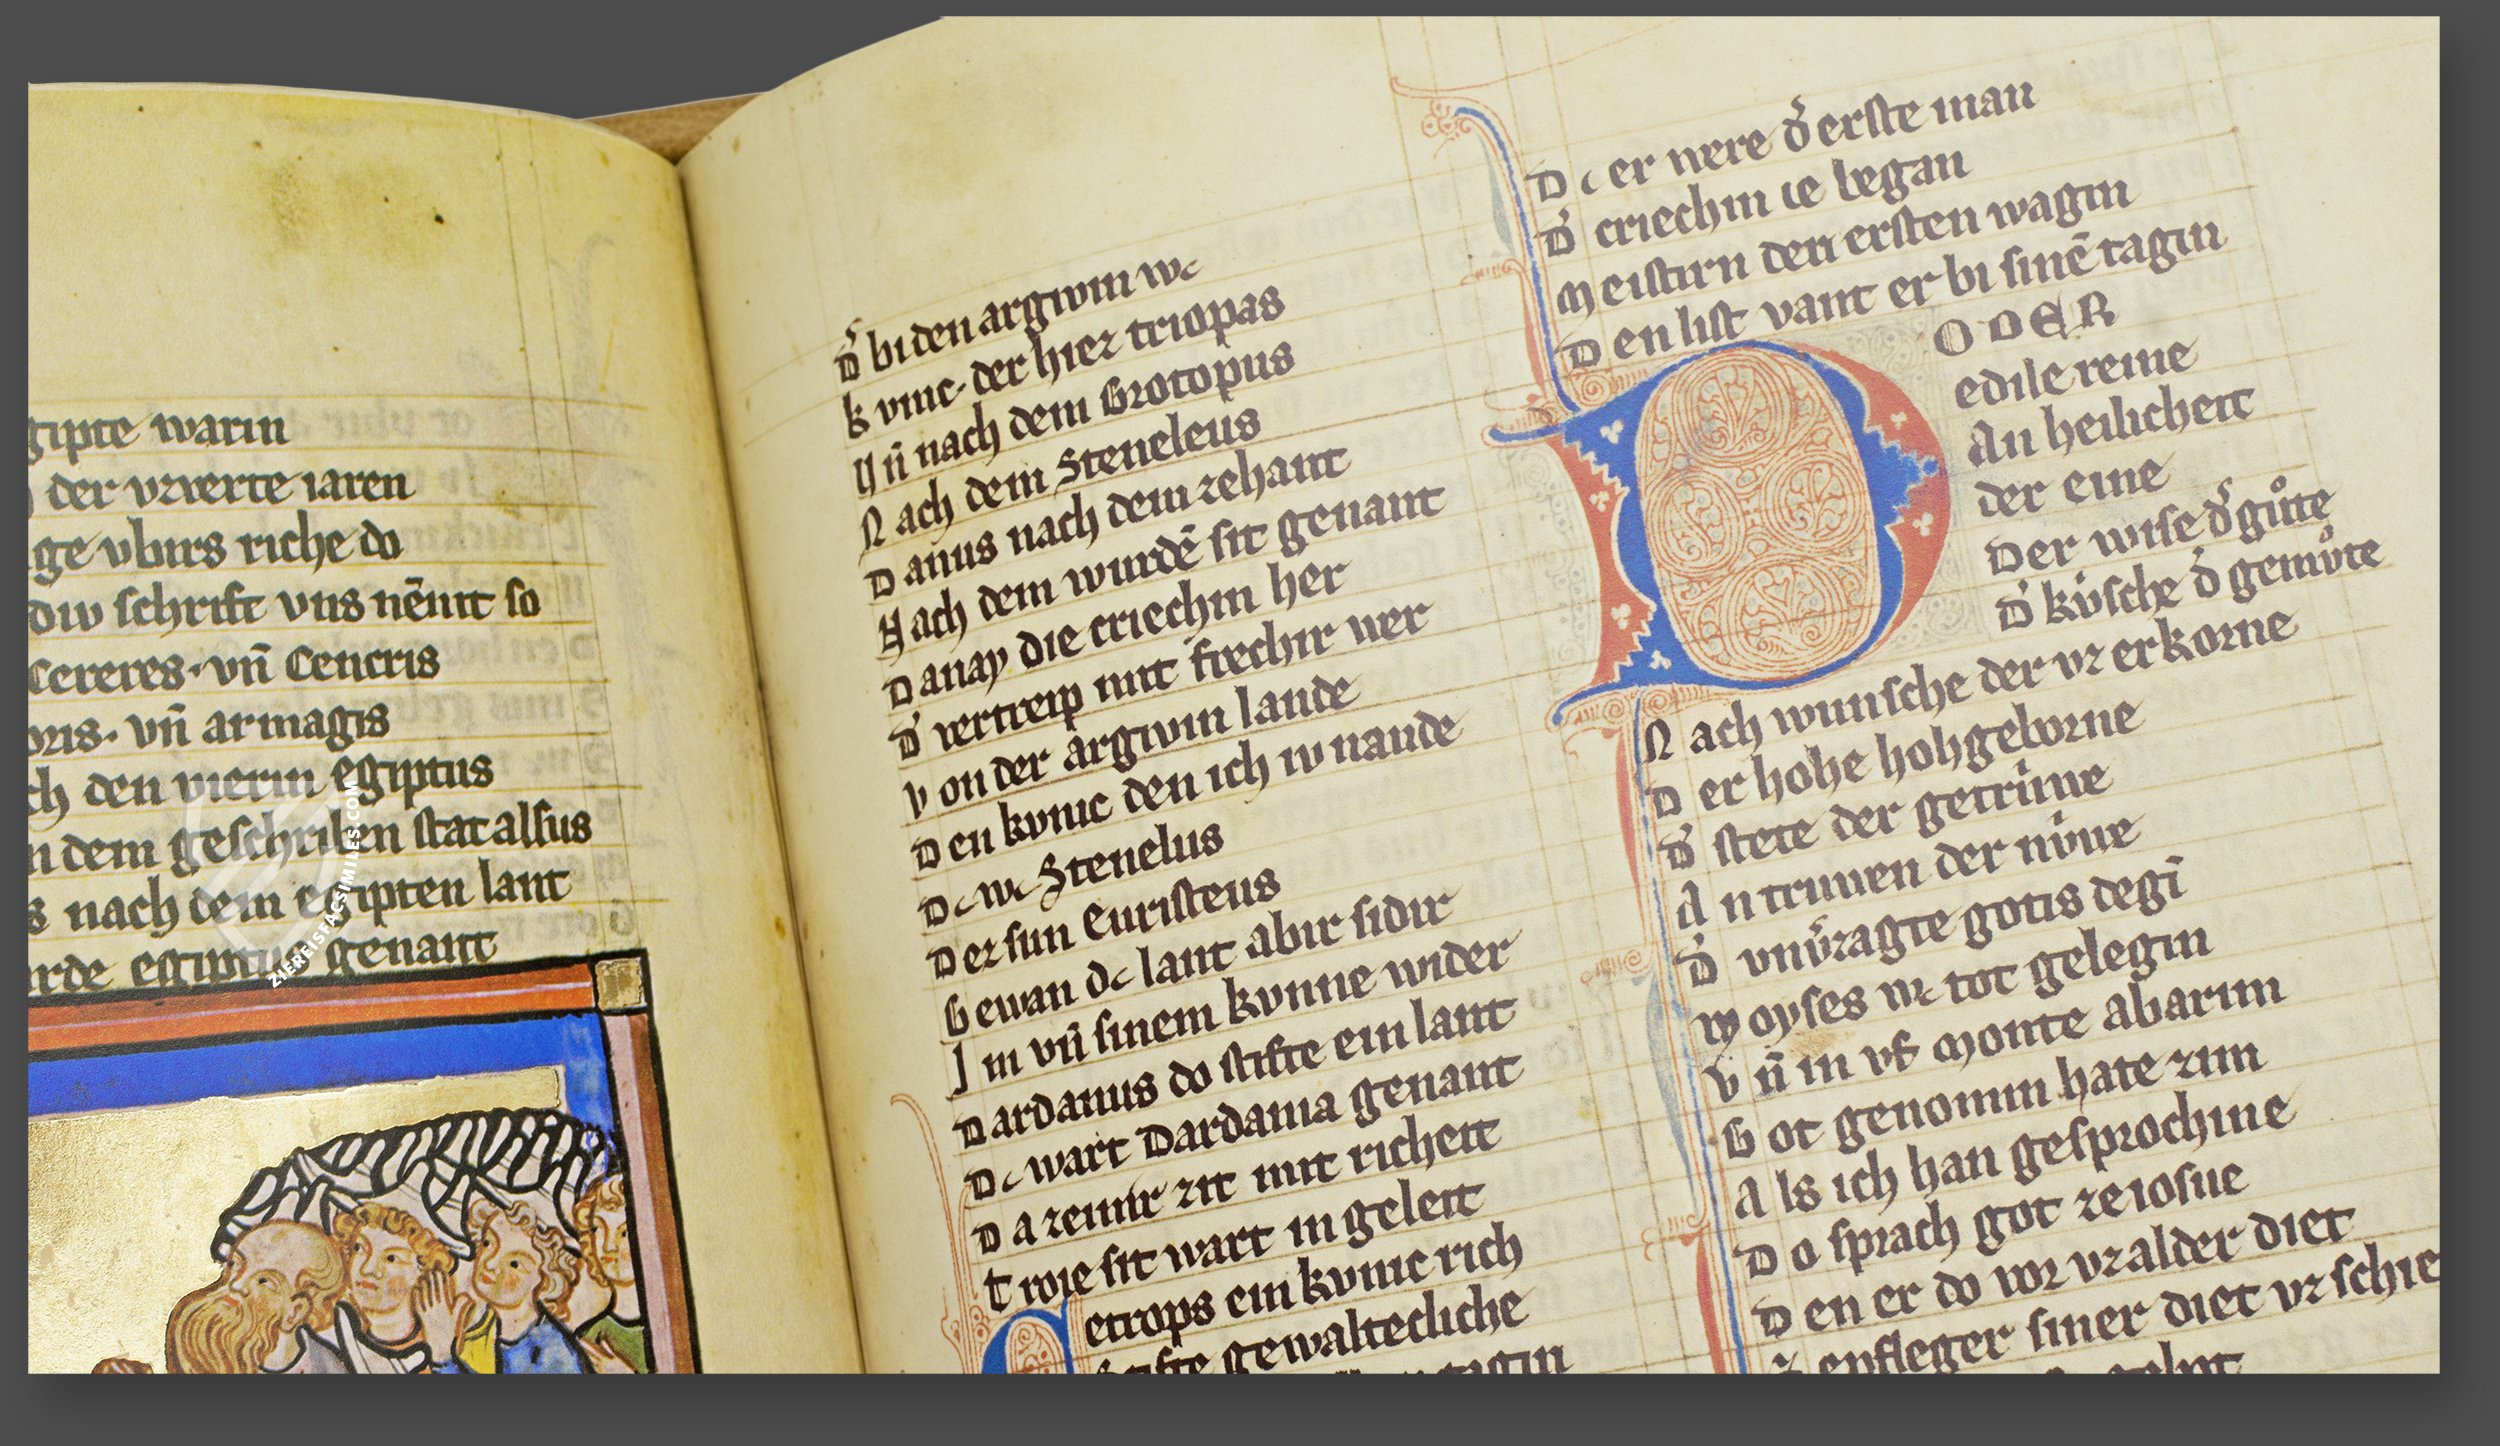 gipte warin
der vzverte iaren
ge vbirs riche do
diw schrift vns nēnit so
Cereres· vn̄ Cencris
oris· vn̄ armagis
ch den vierin egiptus
n dem geschriben stat alsus
s nach dem egipten lant
rde egiptus genant
ZIEREISFACSIMILES.COM
D̾ bi den argivin wc
kvnic· der hiez triopas
Vn̄ nach dem Grotopus
Nach dem Steneleus
Danus nach dem zehant
Nach dem wurdē sit genant
Danay die criechin her
D̾ vertreip mit frechir wer
Von der argivin lande
Den kvnic den ich iv nande
Dc wc Stenelus
Dez sun Euristeus
Gewan dc lant abir sidir
Im vn̄ sinem kvnne wider
Dardanus do stifte ein lant
Dc wart Dardania genant
Da zeinir zit mit richeit
Troie sit wart in geleit
etrops ein kvnic rich
Stifte gewaltecliche
tagin
Dc er were d̾ erste man
D̾ criechin ie began
Meistirn den ersten wagin
Den list vant er bi sinē tagin
DODER
edile reine
An heilicheit
der eine
Der wise d̾ gůte
D̾ kv́sche d̾ gemv̊te
Nach wunsche der vz erkorne
Der hohe hohgeborne
D̾ stete der getriwe
An truwen der niwe
D̾ vnv̾zagte gotis degī
Moyses wc tot gelegin
Vn̄ in vf Monte abarim
Got genomin hate zim
Als ich han gesprochine
Do sprach got ze iosue
Den er do vor vz alder diet
pfleger siner diet vz schie